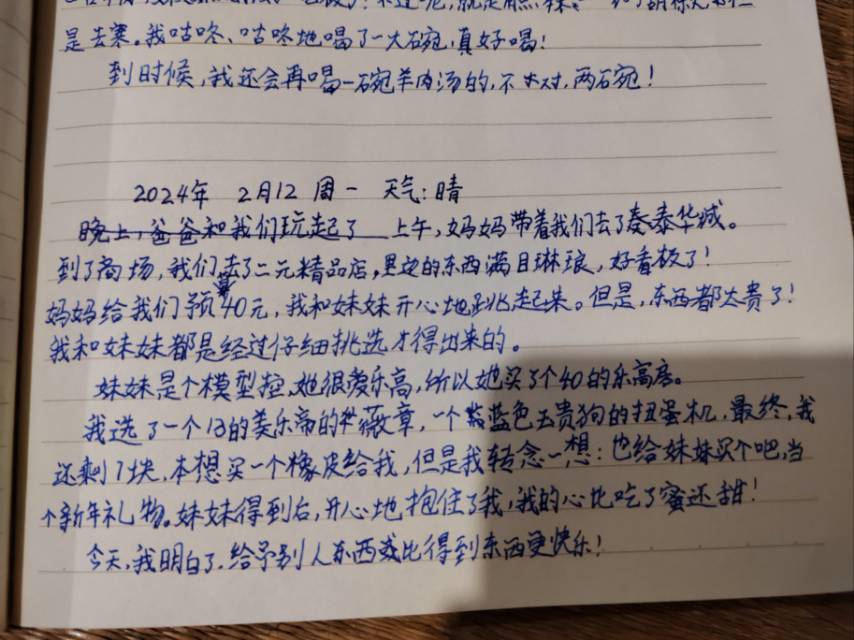 是去寒。我咕咚、咕咚地喝了一大碗,真好喝!
到时候,我还会再喝一碗羊肉汤的,不对,两碗!
2024年 2月12 周一 天气:晴
晚上,爸爸和我们玩起了 上午,妈妈带着我们去了泰华城。
到了商场,我们去了二元精品店,里边的东西满目琳琅,好看极了!
妈妈给我们预40元,我和妹妹开心地跳起来。但是,东西都太贵了!
我和妹妹都是经过仔细挑选才得出来的。
妹妹是个模型控,她很爱乐高,所以她买了个40的乐高。
我选了一个13的美乐蒂的徽章,一个蓝色玉贵狗的扭蛋机,最终,我
还剩1块,本想买一个橡皮给我,但是我转念一想:也给妹妹买个吧,当
个新年礼物。妹妹得到后,开心地抱住了我,我的心比吃了蜜还甜!
今天,我明白了,给予别人东西或比得到东西更快乐!